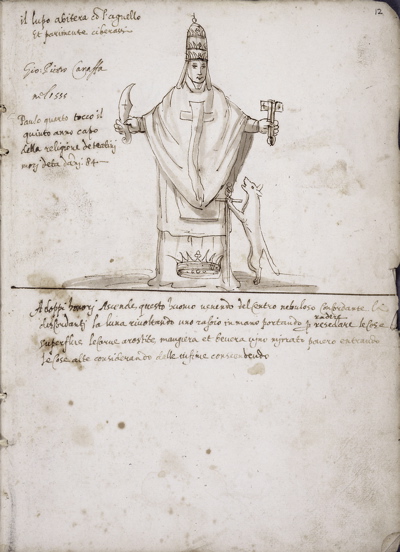 12
il lupo abitera co l'agnello
et parimente ciberassi
Gio. Pietro Caraffa
nel 1555
Paulo quarto tocco il
quinto anno capo
della religione de teatini
mori deta danj. 84
Adoppi honorj Ascende questo huomo venendo del Centro nebuloso Concordante le
discordanti la luna rivoltando uno rasoio in mano portando p radere
resecare le Cose
superflue le carne arostite mangiera et bevera vino mirrato povero entrara in
le Cose alte considerando dalle infime